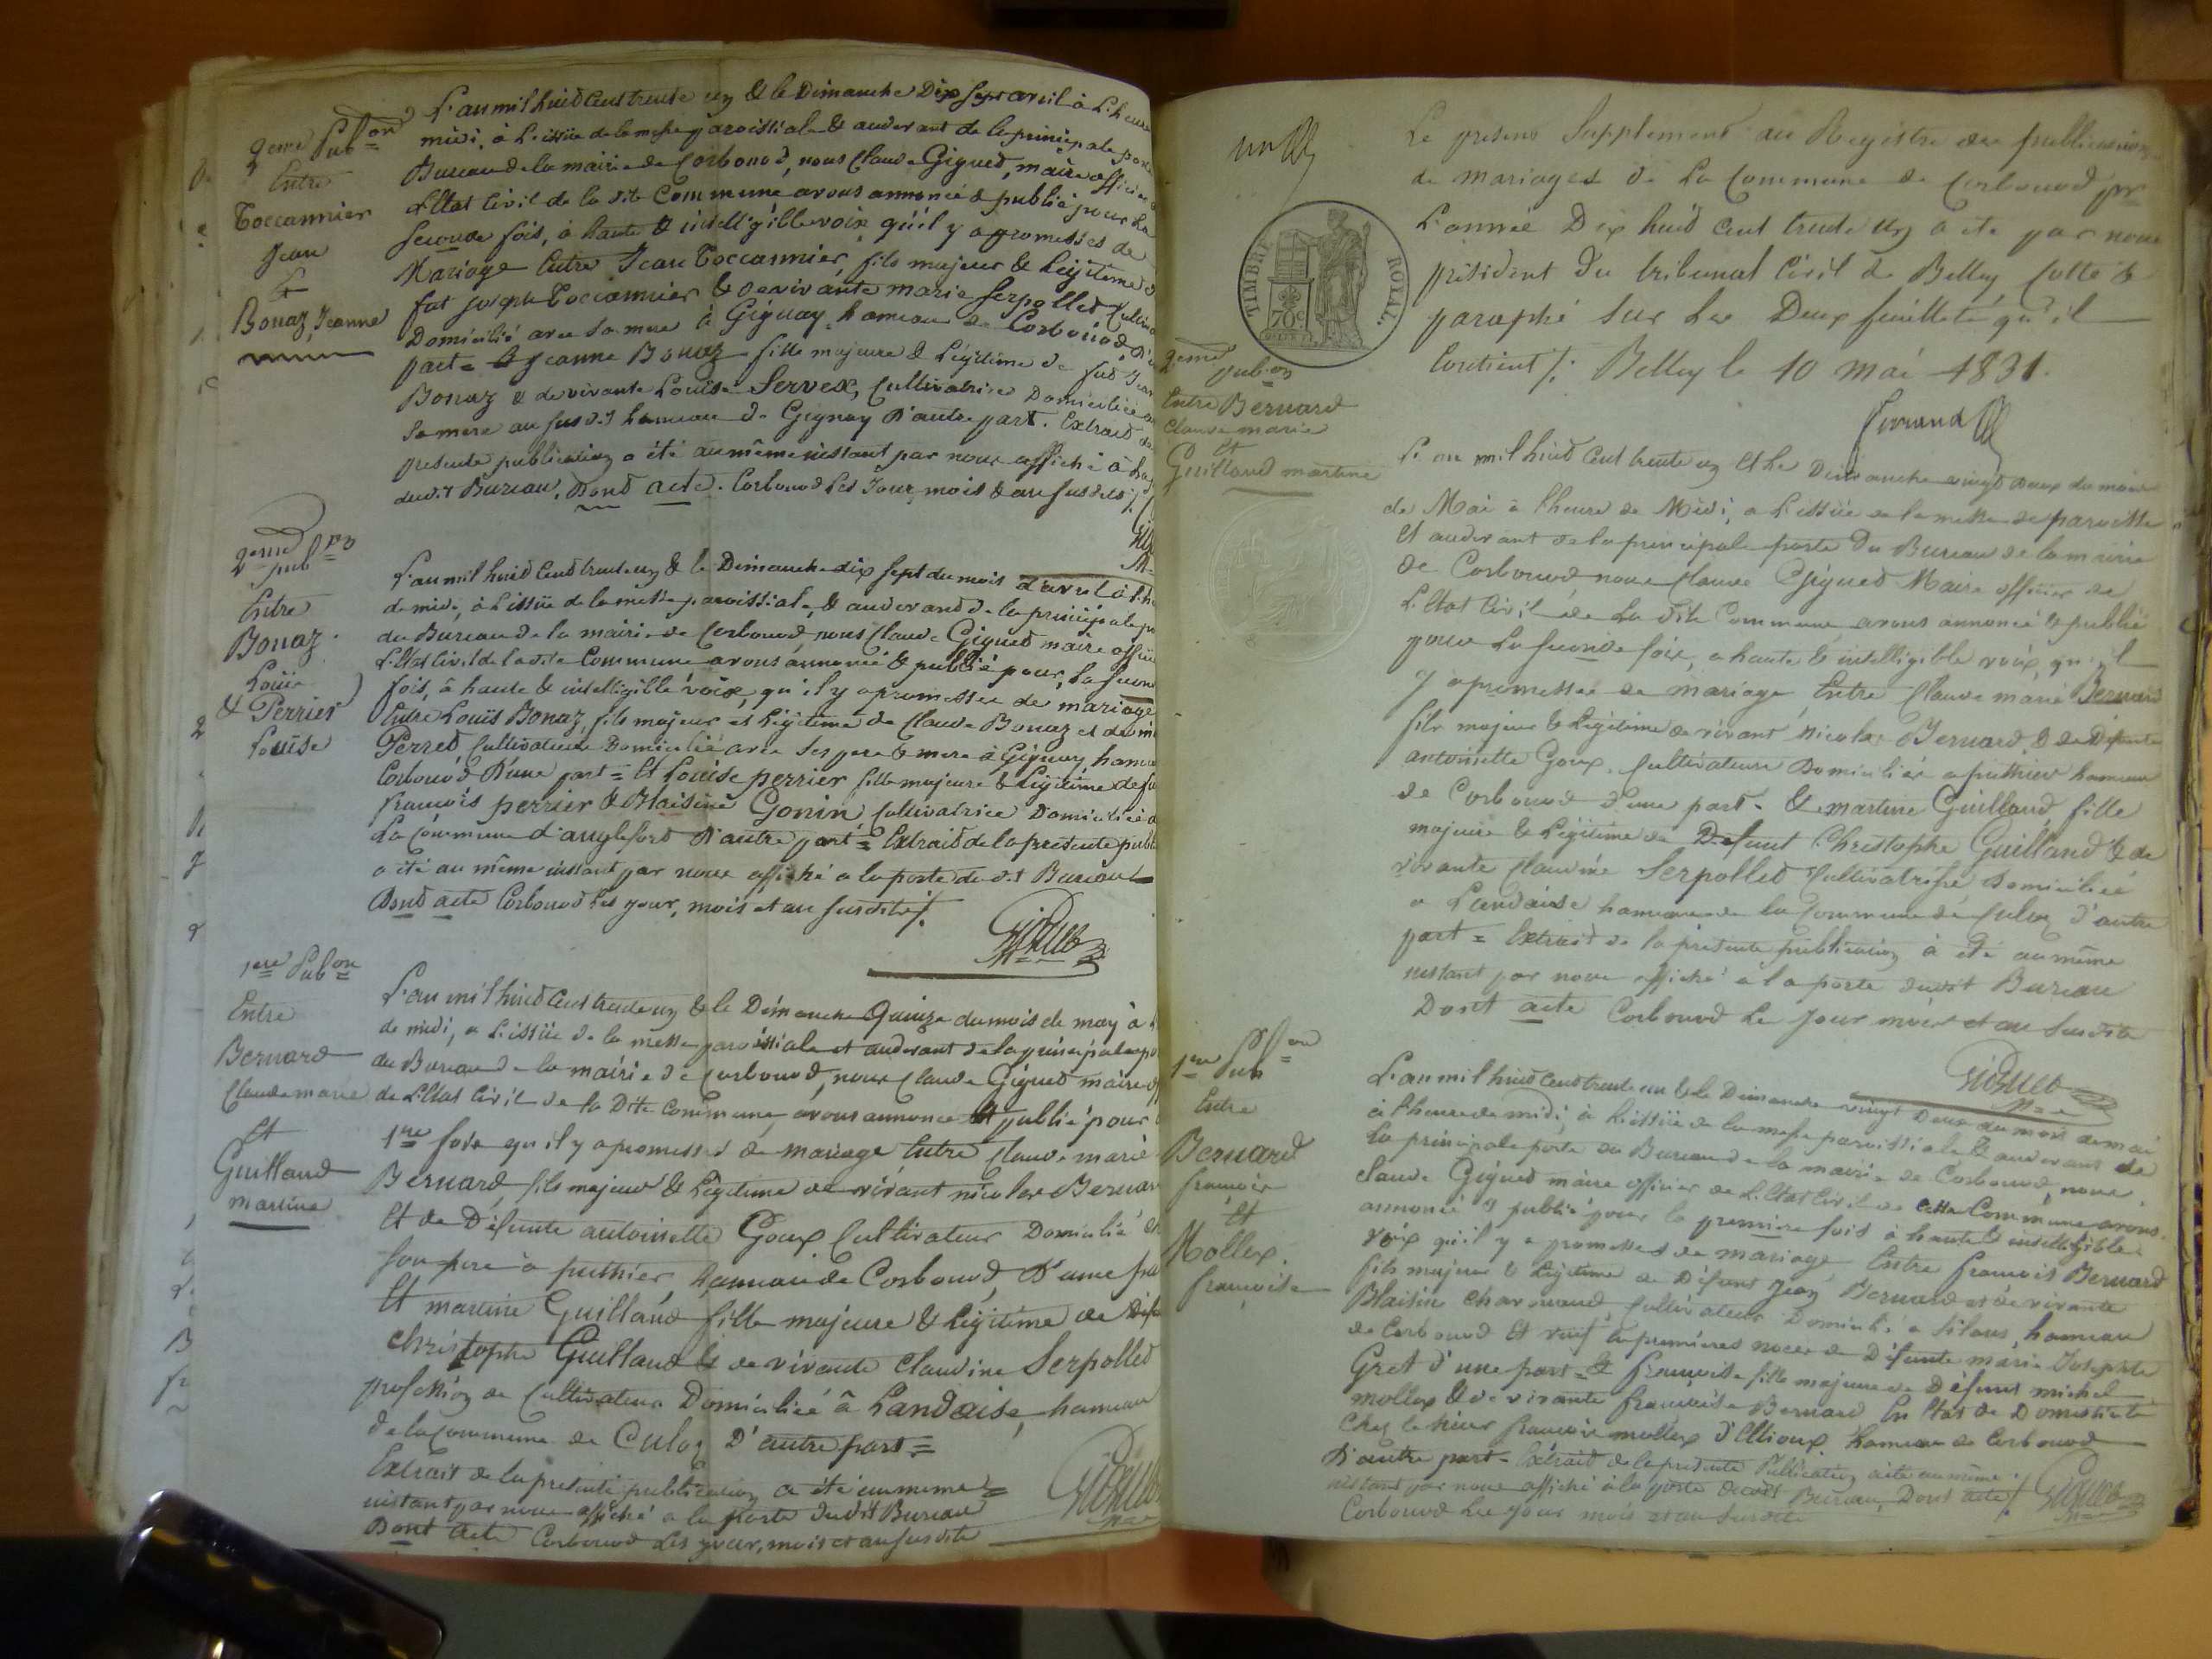 2eme Pub^on
Entre
Toccannier
Jean
Et
Bonaz, Jeanne
L'an mil huid Cent trente un & le Dimanche Dix Sept avril à L'heure
midi, à L'issüe de la messe paroissiale & audevant de la principale porte
Bureau de la mairie de Corbonod, nous Claude Gigued, maire officier
L'Etat Civil de la dite Commune avons annoncé & publié pour La
Seconde fois, à haute & intelligible voix, qu'il y a promesses de
Mariage Entre Jean Toccannier, fils majeur & Légitime d
fut joseph Toccannier & de vivante marie Serpolled Cultiva
Domicilié avec Sa mere à Gignay hameau de Corbonod, D'u
part = & Jeanne Bonaz fille majeure & Légitime de fud Jean
Bonaz & de vivante Louïse Servex, Cultivatrice Domiciliée a
Sa mere au Susdit hameau de Gignay D'autre part. Extraid de
presente publication a été au même instant par nous affiché à La
dudit Bureau, Dond acte. Corbonod Les Jour, mois & an susdits
2eme pub^on
Entre
Bonaz
Louïs
& Perrier
Louïse
L'an mil huid Cend trente un & le Dimanche dix Sept du mois d'avril à l'h
de midi, à L'issüe de la messe paroissiale, & audevand de la principale po
du Bureau de la mairie de Corbonod, nous Claude Gigued maire offici
L'Etat Civil de la dite Commune avons annoncé & publié pour La Secon
fois, à haute & intelligible voix, qu'il y a promesses de mariage
Entre Louïs Bonaz, fils majeur et Légitime de Claude Bonaz et de
Perred Cultivateurs Domicilié avec Ses pere & mere à Gignay hameau
Corbonod D'une part = Et Louïse perrier fille majeure & Légitime de fu
francois perrier & Blaisine Gonin Cultivatrice Domiciliée
La Commune d'anglefort D'autre part = Extraid de la presente publi
a été au même instant par nous affiché a la porte du dit Bureau
Dond acte Corbonod Les jour, mois et an Susdits
Gigued
1ere Pub^on
Entre
Bernard
Claude marie
Et
Guilland
martine
L'an mil huid Cent trente un & le Dimanche Quinze du mois de may à
de midi, a L'issüe de la messe paroissiale et audevant de la principale po
du Bureau de la mairie de Corbonod, nous Claude Gigued maire
de L'Etat Civil de la Dite Commune, avons annonce Et publié pour
1ere fois qu'il y a promesses de mariage Entre Claude marie
Bernard, fils majeur & Légitime de vivant nicolas Bernar
Et de Défunte antoinette Goux Cultivateur Domicilié
Son pere à puthier, hameau de Corbonod, D'une
Et martine Guilland fille majeure & Légitime de Défu
christophe Guilland & de vivante Claudine Serpolled
profession de Cultivateurs Domiciliée à Landaise, hameau
de la Commune de Culoz D'autre part =
Extrait de la presente publication a été au meme
instant par nous affiché a la porte du dit Bureau
Dont acte Corbonod Les jour, mois et an susdits
Gigued
Le present Supplement au Registre des publications
de mariages de La Commune de Corbonod pr
L'année Dix huid Cent trente un a été par nous
président du tribunal Civil de Belley Cotté &
paraphé Sur Les Deux feuillets qu'il
Contient /. Belley le 10 mai 1831.
TIMBRE ROYAL.
70c
2eme
pub^on
Entre Bernard
Claude marie
Et
Guilland martine
L'an mil huid Cent trente un Et Le Dimanche vingt deux du mois
de Mai à l'heure de Midi, a L'issüe de la messe de paroisse
Et audevant de la principale porte Du Bureau de la mairie
De Corbonod nous Claude Gigued Maire officier de
L'Etat Civil de La dite Commune avons annoncé & publié
pour La Seconde fois, a haute & intelligible voix, qu'il
y a promesses de mariage Entre Claude marie Bernard
fils majeur & Légitime de vivant Nicolas Bernard, & de Défunte
antoinette Goux, Cultivateurs Domicilié a puthier hameau
de Corbonod d'une part. & martine Guilland, fille
majeure & Légitime de Défunt Christophe Guilland & de
vivante Claudine Serpolled Cultivatrise Domiciliée
a Landaise hameau de la Commune de Culoz d'autre
part = Extrait de la présente publication à été au même
instant par nous affiché à la porte dudit Bureau
Dont acte Corbonod Le jour mois et an Susdits
Gigued
1re Pub^on
Entre
Bernard
francois
Et
Mollex
françoise
L'an mil huid Cend trente un & le Dimanche vingt Deux du mois de mai
à l'heure de midi, à L'issüe de la messe paroissiale & audevant de
La principale porte du Bureau de la mairie de Corbonod, nous
Claude Gigued maire officier de L'Etat Civil de Cette Commune avons
annoncé & publié pour la premiere fois à haute & intelligible
voix qu'il y a promesses de mariage Entre francois Bernard
fils majeur & Légitime de Défunt Jean Bernard et de vivante
Blaisine Charvand Cultivateur Domicilié a Silans, hameau
de Corbonod Et veuf en premieres noces de Défunte marie Josephte
Gret d'une part = & francoise fille majeure de Défunt michel
mollex & de vivante francoise Bernard En Etat de Domesticité
Chez le Sieur francois mollex d'Etrioux hameau de Corbonod
D'autre part = Extrait de la presente Publication a été au même
instant par nous affiché à la porte dudit Bureau, Dont acte /.
Corbonod Les jour mois et an Susdits
Gigued